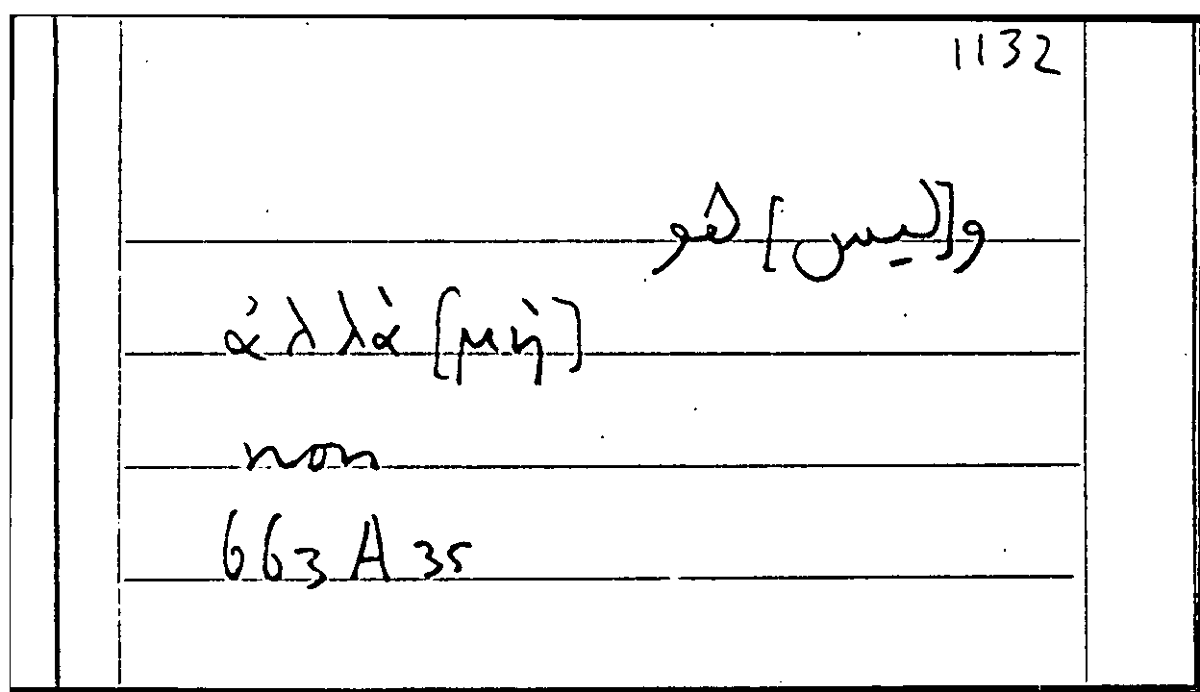 1132
و[ليس] هو
ἀλλὰ [μὴ]
non
663 A 35